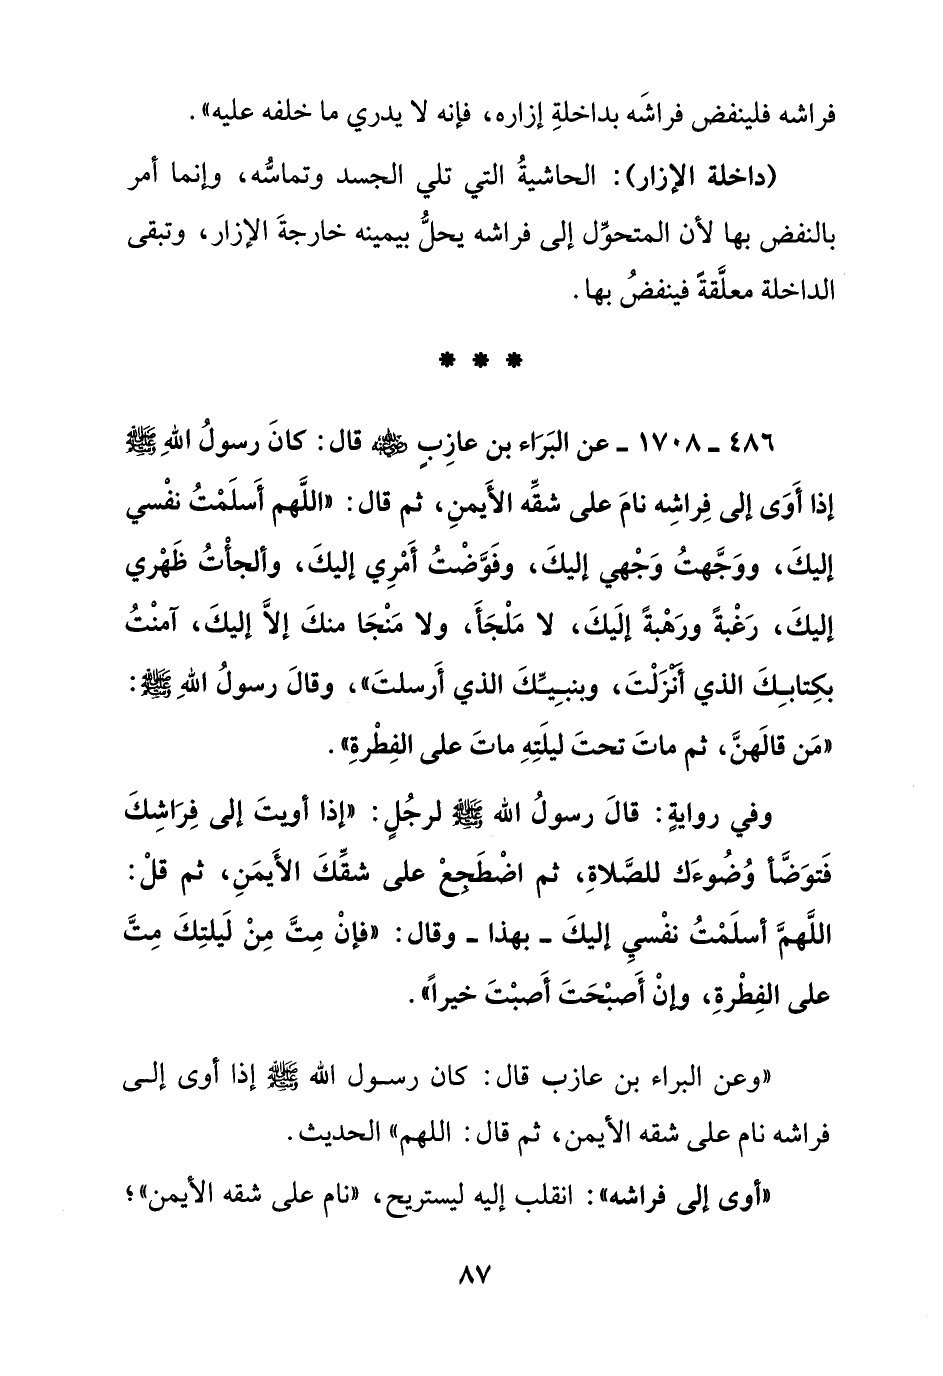 فراشه فلينفض فراشَه بداخلةِ إزاره، فإنه لا يدري ما خلفه عليه».
(داخلة الإزار): الحاشيةُ التي تلي الجسد وتماسُّه، وإنما أمر
بالنفض بها لأن المتحوِّل إلى فراشه يحلُّ بيمينه خارجةَ الإزار، وتبقى
الداخلة معلَّقةً فينفضُ بها.
* * *
٤٨٦ ـ ١٧٠٨ ـ عن البَرَاء بن عازِبٍ ﵁ قال: كانَ رسولُ اللهِ ﷺ
إذا أَوَى إلى فِراشِه نامَ على شقِّه الأَيمنِ، ثم قال: «اللَّهم أَسلَمْتُ نفْسي
إليكَ، ووَجَّهتُ وَجْهي إليكَ، وفَوَّضْتُ أَمْرِي إليكَ، وألجأْتُ ظَهْري
إليكَ، رَغْبةً ورَهْبةً إلَيكَ، لا مَلْجَأَ، ولا مَنْجَا منكَ إلاَّ إليكَ، آمنْتُ
بكِتابِكَ الذي أَنْزَلْتَ، وبنبيِّكَ الذي أَرسلتَ»، وقالَ رسولُ اللهِ ﷺ:
«مَن قالَهنَّ، ثم ماتَ تحتَ ليلَتِهِ ماتَ على الفِطْرةِ».
وفي روايةٍ: قالَ رسولُ الله ﷺ لرجُلٍ: «إذا أويتَ إلى فِرَاشِكَ
فَتوَضَّأ وُضُوءَك للصَّلاةِ، ثم اضْطَجِعْ على شقِّكَ الأَيمَنِ، ثم قلْ:
اللَّهمَّ أسلَمْتُ نفْسيِ إليكَ ـ بهذا ـ وقال: «فإنْ مِتَّ مِنْ لَيلتِكَ مِتَّ
على الفِطْرةِ، وإنْ أَصبْحَتَ أَصبْتَ خيراً».
«وعن البراء بن عازب قال: كان رسول الله ﷺ إذا أوى إلى
فراشه نام على شقه الأيمن، ثم قال: اللهم» الحديث.
«أوى إلى فراشه»: انقلب إليه ليستريح، «نام على شقه الأيمن»؛
٨٧